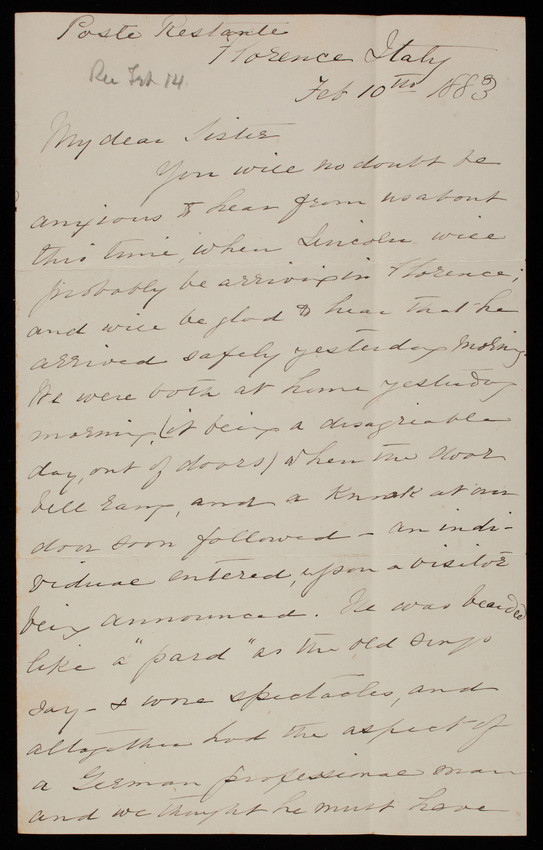 Poste Restante
Florence Italy
Rec Feb 14
Feb 10th 1883
My dear Sister
You will no doubt be
anxious to hear from us about
this time, when Lincoln will
probably be arriving in Florence;
and will be glad to hear that he
arrived safely yesterday morning.
We were both at home yesterday
morning, (it being a disagreeable
day, out of doors) when the door
bell rang, and a knock at our
door soon followed - an indi-
vidual entered, upon a visitor
being announced. He was bearded
like a "pard" as the old songs
say - & wore spectacles, and
altogether had the aspect of
a German professional man
and we thought he must have